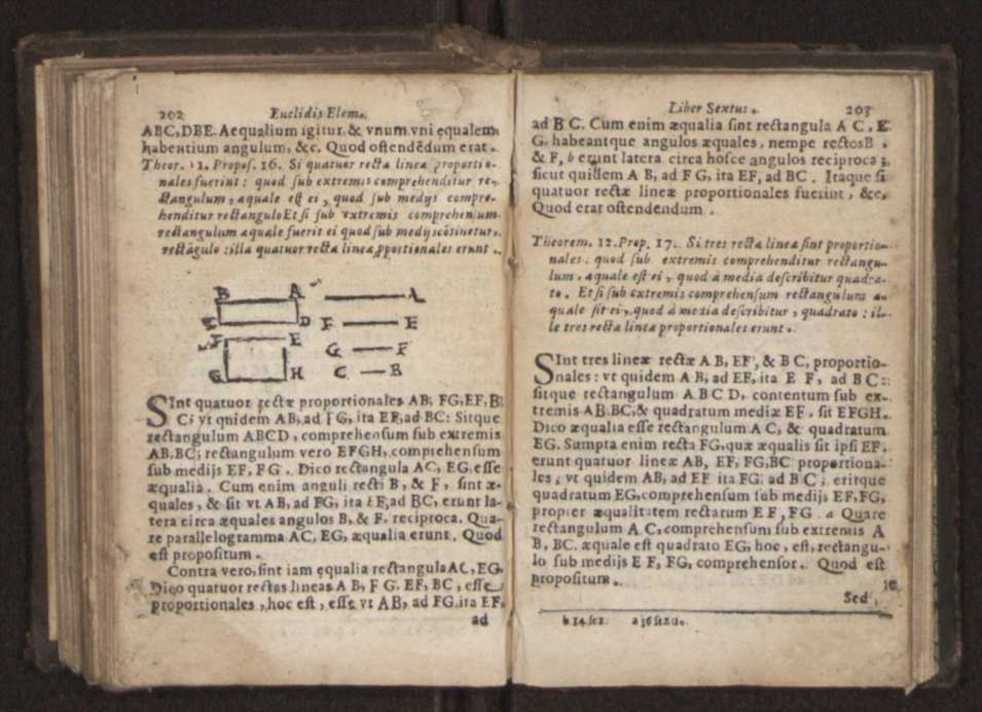 202 Euclidis Elem.
ABC, DBE. Aequalium igitur & vnum vni equalem
habentium angulum, &c. Quod ostendēdum erat.
Theor. 11. Propos. 16. Si quatuor rectæ lineæ proportio-
nales fuerint: quod sub extremis comprehenditur re-
ctangulum, æquale est ei, quod sub medys compre-
henditur rectangulo Et si sub extremis comprehensum
rectangulum æquale fuerit ei quod sub medijs cōtinetur,
rectāgulo: illa quatuor rectæ lineæ pportionales erunt.
B A A
C D F E
F E G F
G H C B
SInt quatuor rectæ proportionales AB, FG, EF, B
C; vt quidem AB, ad FG, ita EF, ad BC: Sitque
rectangulum ABCD, comprehensum sub extremis
AB, BC; rectangulum vero EFGH, comprehensum
sub medijs EF, FG. Dico rectangula AC, EG, esse
æqualia. Cum enim anguli recti B, & F, sint æ-
quales, & sit vt AB, ad FG, ita EF, ad BC, erunt la-
tera circa æquales angulos B, & F, reciproca. Qua-
re parallelogramma AC, EG, æqualia erunt. Quod
est propositum.
Contra vero, sint iam equalia rectangula AC, EG.
Dico quatuor rectas lineas A B, F G. EF, BC, esse
proportionales, hoc est, esse vt AB, ad FG, ita EF,
ad
Liber Sextus. 203
ad B C. Cum enim æqualia sint rectangula A C, E
G, habeantque angulos æquales, nempe rectos B,
& F, b erunt latera circa hosce angulos reciproca;
sicut quidem A B, ad F G, ita EF, ad BC. Itaque si
quatuor rectæ lineæ proportionales fuerint, &c,
Quod erat ostendendum.
Theorem. 12. Prop. 17. Si tres rectæ lineæ sint proportio-
nales: quod sub extremis comprehenditur rectangu-
lum, æquale est ei, quod à media describitur quadra-
to. Et si sub extremis comprehensum rectangulum æ-
quale sit ei, quod à media describitur, quadrato: il-
læ tres rectæ lineæ proportionales erunt.
SInt tres lineæ rectæ A B, EF, & B C, proportio-
nales: vt quidem A B, ad EF, ita E F, ad B C:
sitque rectangulum A B C D, contentum sub ex-
tremis AB, BC, & quadratum mediæ EF, sit EFGH.
Dico æqualia esse rectangulum A C, & quadratum
EG. Sumpta enim recta FG, quæ æqualis sit ipsi EF,
erunt quatuor lineæ AB, EF, FG, BC proportiona-
les, vt quidem AB, ad EF ita FG: ad B C; eritque
quadratum EG, comprehensum sub medijs EF, FG,
propter æqualitatem rectarum E F, FG. a Quare
rectangulum A C, comprehensum sub extremis A
B, BC. æquale est quadrato EG, hoc, est, rectangu-
lo sub medijs E F, FG, comprehensor. Quod est
propositum.
Sed,
b 14 sex. a 16 sexti.